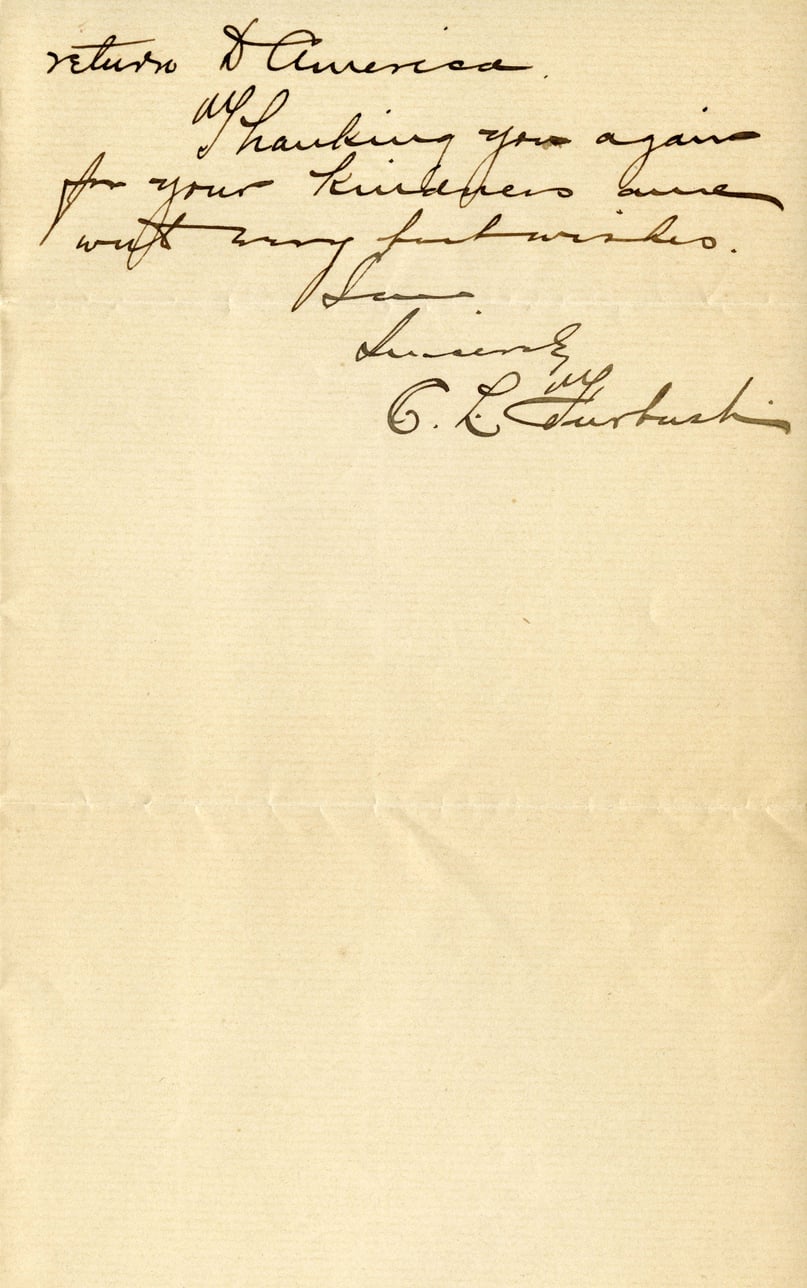 return to America.
Thanking you again
for your kindness and
with very best wishes.
I am
Sincerely
C. L. Furbush